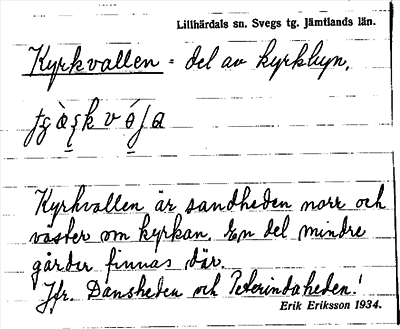 Lillhärdals sn. Svegs tg. Jämtlands län.
Kyrkvallen = del av kyrkbyn.
Kyrkvallen är sandheden norr och
väster om kyrkan. En del mindre
gårdar finnas där.
Jfr. Dansheden och Peterindaheden!
Erik Eriksson 1934.